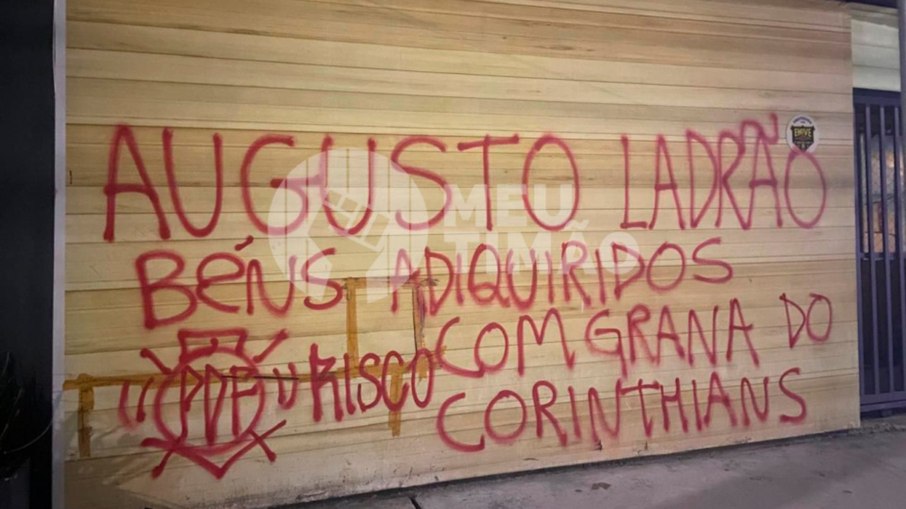 AUGUSTO LADRÃO
BÉNS ADIQUIRIDOS
COM GRANA DO
"PDF" RISCO CORINTHIANS
MEU
TIMÃO